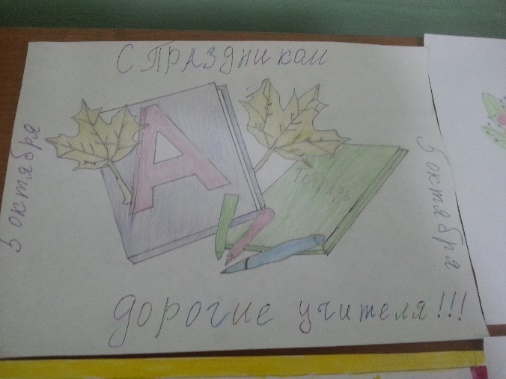 С ПРАЗДНИКОМ
5 октября
А
5 октября
дорогие учителя!!!